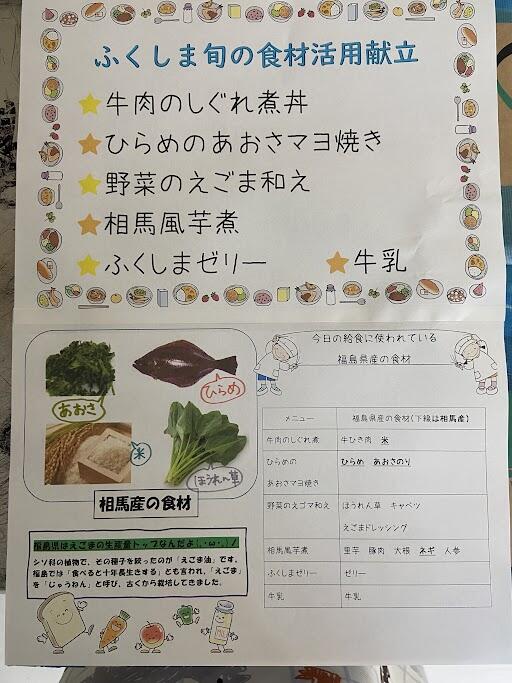 ふくしま旬の食材活用献立
牛肉のしぐれ煮丼
ひらめのあおさマヨ焼き
野菜のえごま和え
相馬風芋煮
ふくしまゼリー 牛乳
あおさ
ひらめ
米
ほうれん草
相馬産の食材
福島県はえごまの生産量トップなんだよ(,,･ω･,,)ﾉ
シソ科の植物で、その種子を絞ったのが「えごま油」です。
福島では「食べると十年長生きする」とも言われ、「えごま」
を「じゅうねん」と呼び、古くから栽培してきました。
今日の給食に使われている
福島県産の食材
メニュー 福島県産の食材(下線は相馬産)
牛肉のしぐれ煮 牛ひき肉 米
ひらめの ひらめ あおさのり
あおさマヨ焼き
野菜のエゴマ和え ほうれん草 キャベツ
えごまドレッシング
相馬風芋煮 里芋 豚肉 大根 ネギ 人参
ふくしまゼリー ゼリー
牛乳 牛乳